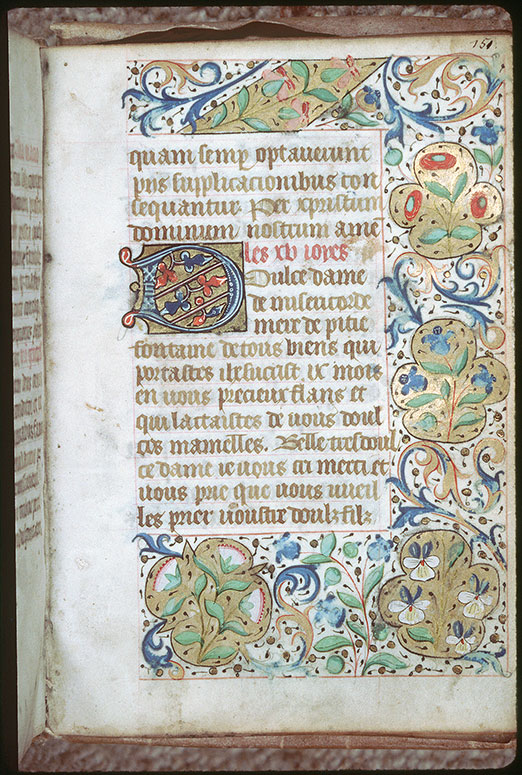 151
quam semp optaverunt
pijs supplicacionibus con
sequantur. Per xpistum
dominum nostrum ame
les xv ioyes
Dulce dame
de misericorde
mere de pitie
fontaine de tous biens qui
portastes ihesucrist ix mois
en vous precieux flans et
qui lactastes de vous doul
ces mamelles. Belle tresdoul
ce dame ie vous cri merci et
vous prie que vous vueil
les prier vostre doulz filz